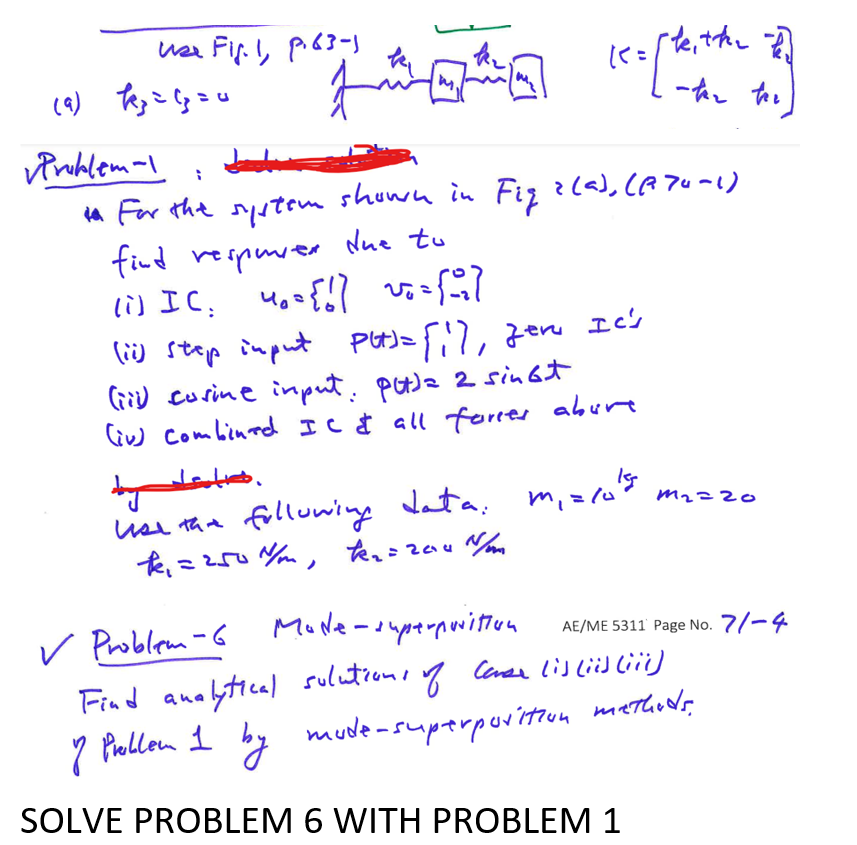 use Fig. 1, p. 63-1
k₁ k₂
m₁ m₂
K = [k₁+k₂ -k₂
-k₂ k₂]
(a) k₃ = c₃ = 0
✓ Problem-1 :
For the system shown in Fig 2(a), (P 70-1)
find responses due to
(i) IC: u₀ = {1 0} v₀ = {0 -2}
(ii) step input P(t) = {1 1}, zero IC's
(iii) cosine input. p(t) = 2 sin6t
(iv) combined IC & all forces above
Use the following data. m₁ = 10 kg m₂ = 20
k₁ = 250 N/m, k₂ = 200 N/m
✓ Problem-6 Mode-superposition AE/ME 5311 Page No. 71-4
Find analytical solutions of Case (i) (ii) (iii)
of Problem 1 by mode-superposition methods.
SOLVE PROBLEM 6 WITH PROBLEM 1